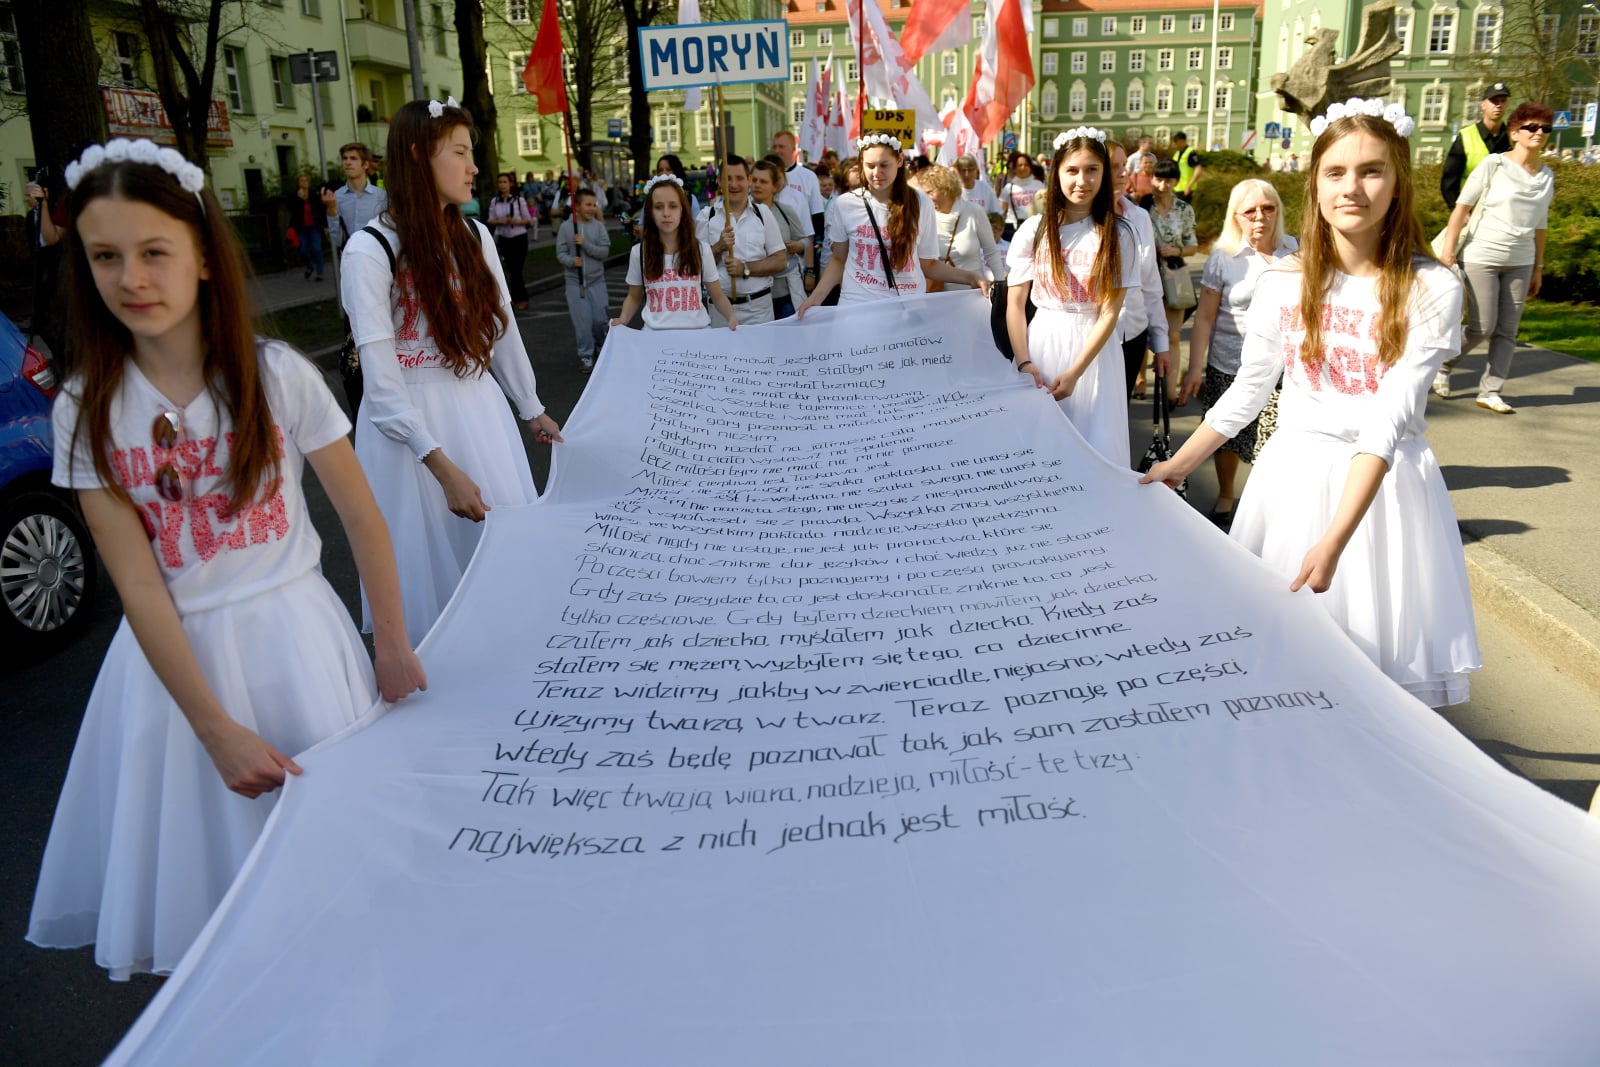 MORYŃ
DPS
MARSZ DLA
ŻYCIA
MARSZ DLA
ŻYCIA
ŻYCIA
Gdybym mówił językami ludzi i aniołów
a miłości bym nie miał, stałbym się jak miedź
brzęcząca albo cymbał brzmiący
Gdybym też miał dar prorokowania
i znał wszystkie tajemnice i posiadał
wszelką wiedzę, i wiarę miał tak
izbym góry przenosił a miłości bym nie miał
byłbym niczym.
I gdybym rozdał na jałmużnę całą majętność
moją, a ciało wystawił na spalenie
lecz miłości bym nie miał nic mi nie pomoże.
Miłość cierpliwa jest, łaskawa jest
Miłość nie zazdrości nie szuka poklasku, nie unosi się
jest bezwstydna, nie szuka swego, nie unosi się
nie pamięta złego, nie cieszy się z niesprawiedliwości
lecz współweseli się z prawdą. Wszystko znosi wszystkiemu
wierzy, we wszystkim pokłada nadzieję, wszystko przetrzyma
Miłość nigdy nie ustaje, nie jest jak proroctwa, które się
skończą, choć zniknie dar języków i choć wiedzy już nie stanie.
Po części bowiem tylko poznajemy i po części prorokujemy
Gdy zaś przyjdzie to, co jest doskonałe, zniknie to, co jest
tylko częściowe. Gdy byłem dzieckiem mówiłem jak dziecko,
czułem jak dziecko, myślałem jak dziecko. Kiedy zaś
stałem się mężem, wyzbyłem się tego, co dziecinne
Teraz widzimy jakby w zwierciadle, niejasno; wtedy zaś
ujrzymy twarzą w twarz. Teraz poznaję po części,
wtedy zaś będę poznawał tak, jak sam zostałem poznany.
Tak więc trwają wiara, nadzieja, miłość - te trzy:
największa z nich jednak jest miłość.